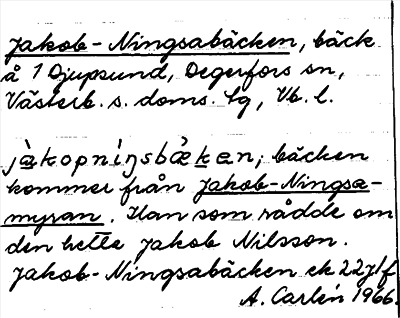 Jakob-Ningsabäcken, bäck
å 1 Djupsund, Degerfors sn,
Västerb. s. doms. tg, Vb. l.
jàkopníŋsbækæn; bäcken
kommer från Jakob-Ningsa-
myran. Han som rådde om
den hette Jakob Nilsson.
Jakob-Ningsabäcken ek 22J1f
A. Carlén 1966.